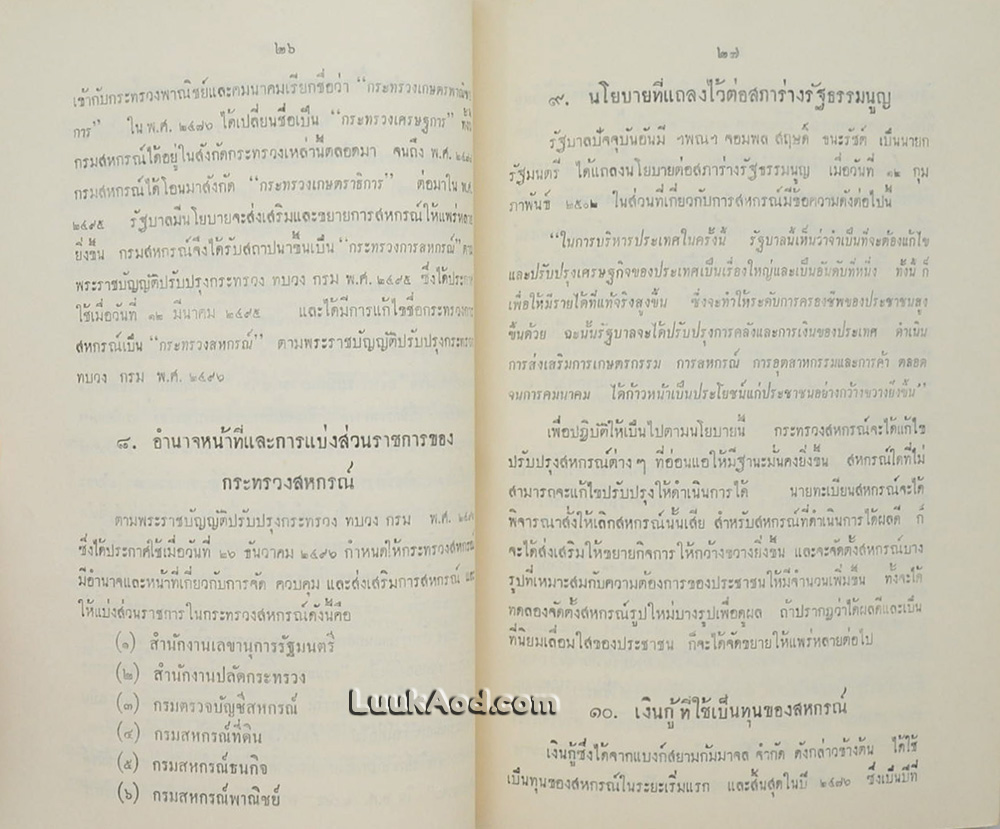 ๒๖
เข้ากับกระทรวงพาณิชย์และคมนาคมเรียกชื่อว่า “กระทรวงเกษตรพาณิชย
การ” ในพ.ศ. ๒๔๗๖ ได้เปลี่ยนชื่อเป็น “กระทรวงเศรษฐการ”
กรมสหกรณ์ได้อยู่ในสังกัดกระทรวงเหล่านี้ตลอดมา จนถึง พ.ศ.
กรมสหกรณ์ได้โอนมาสังกัด “กระทรวงเกษตราธิการ” ต่อมาใน พ.ศ.
๒๔๙๕ รัฐบาลมีนโยบายจะส่งเสริมและขยายการสหกรณ์ให้แพร่หลาย
ยิ่งขึ้น กรมสหกรณ์จึงได้รับสถาปนาขึ้นเป็น “กระทรวงการสหกรณ์” ตาม
พระราชบัญญัติปรับปรุงกระทรวง ทบวง กรม พ.ศ. ๒๔๙๕ ซึ่งได้ประกาศ
ใช้เมื่อวันที่ ๑๒ มีนาคม ๒๔๙๕ และได้มีการแก้ไขชื่อกระทรวงการ
สหกรณ์เป็น “กระทรวงสหกรณ์” ตามพระราชบัญญัติปรับปรุงกระทรวง
ทบวง กรม พ.ศ. ๒๔๙๖
๘. อำนาจหน้าที่และการแบ่งส่วนราชการของ
กระทรวงสหกรณ์
ตามพระราชบัญญัติปรับปรุงกระทรวง ทบวง กรม พ.ศ.
ซึ่งได้ประกาศใช้เมื่อวันที่ ๒๖ ธันวาคม ๒๔๙๖ กำหนดให้กระทรวงสหกรณ์
มีอำนาจและหน้าที่เกี่ยวกับการจัด ควบคุม และส่งเสริมการสหกรณ์ และ
ให้แบ่งส่วนราชการในกระทรวงสหกรณ์ดังนี้คือ
(๑) สำนักงานเลขานุการรัฐมนตรี
(๒) สำนักงานปลัดกระทรวง
(๓) กรมตรวจบัญชีสหกรณ์
(๔) กรมสหกรณ์ที่ดิน
(๕) กรมสหกรณ์ธนกิจ
(๖) กรมสหกรณ์พาณิชย์
๒๗
๙. นโยบายที่แถลงไว้ต่อสภาร่างรัฐธรรมนูญ
รัฐบาลปัจจุบันอันมี ฯพณฯ จอมพล สฤษดิ์ ธนะรัชต์ เป็นนายก
รัฐมนตรี ได้แถลงนโยบายต่อสภาร่างรัฐธรรมนูญ เมื่อวันที่ ๑๒ กุม
ภาพันธ์ ๒๕๐๒ ในส่วนที่เกี่ยวกับการสหกรณ์มีข้อความดังต่อไปนี้
“ในการบริหารประเทศในครั้งนี้ รัฐบาลนี้เห็นว่าจำเป็นที่จะต้องแก้ไข
และปรับปรุงเศรษฐกิจของประเทศเป็นเรื่องใหญ่และเป็นอันดับที่หนึ่ง ทั้งนี้ ก็
เพื่อให้มีรายได้ที่แท้จริงสูงขึ้น ซึ่งจะทำให้ระดับการครองชีพของประชาชนสูง
ขึ้นด้วย ฉะนั้นรัฐบาลจะได้ปรับปรุงการคลังและการเงินของประเทศ ดำเนิน
การส่งเสริมการเกษตรกรรม การสหกรณ์ การอุตสาหกรรมและการค้า ตลอด
จนการคมนาคม ได้ก้าวหน้าเป็นประโยชน์แก่ประชาชนอย่างกว้างขวางยิ่งขึ้น”
เพื่อปฏิบัติให้เป็นไปตามนโยบายนี้ กระทรวงสหกรณ์จะได้แก้ไข
ปรับปรุงสหกรณ์ต่างๆ ที่อ่อนแอให้มีฐานะมั่นคงยิ่งขึ้น สหกรณ์ใดที่ไม่
สามารถจะแก้ไขปรับปรุงให้ดำเนินการได้ นายทะเบียนสหกรณ์จะได้
พิจารณาสั่งให้เลิกสหกรณ์นั้นเสีย สำหรับสหกรณ์ที่ดำเนินการได้ผลดี ก็
จะได้ส่งเสริมให้ขยายกิจการให้กว้างขวางยิ่งขึ้น และจะจัดตั้งสหกรณ์บาง
รูปที่เหมาะสมกับความต้องการของประชาชนให้มีจำนวนเพิ่มขึ้น ทั้งจะได้
ทดลองจัดตั้งสหกรณ์รูปใหม่บางรูปเพื่อดูผล ถ้าปรากฏว่าได้ผลดีและเป็น
ที่นิยมเลื่อมใสของประชาชน ก็จะได้จัดขยายให้แพร่หลายต่อไป
๑๐. เงินกู้ ที่ใช้เป็นทุนของสหกรณ์
เงินกู้ซึ่งได้จากแบงก์สยามกัมมาจล จำกัด ดังกล่าวข้างต้น ได้ใช้
เป็นทุนของสหกรณ์ในระยะเริ่มแรก และสิ้นสุดในปี ๒๔๗๐ ซึ่งเป็นปีที่
LuukAod.com